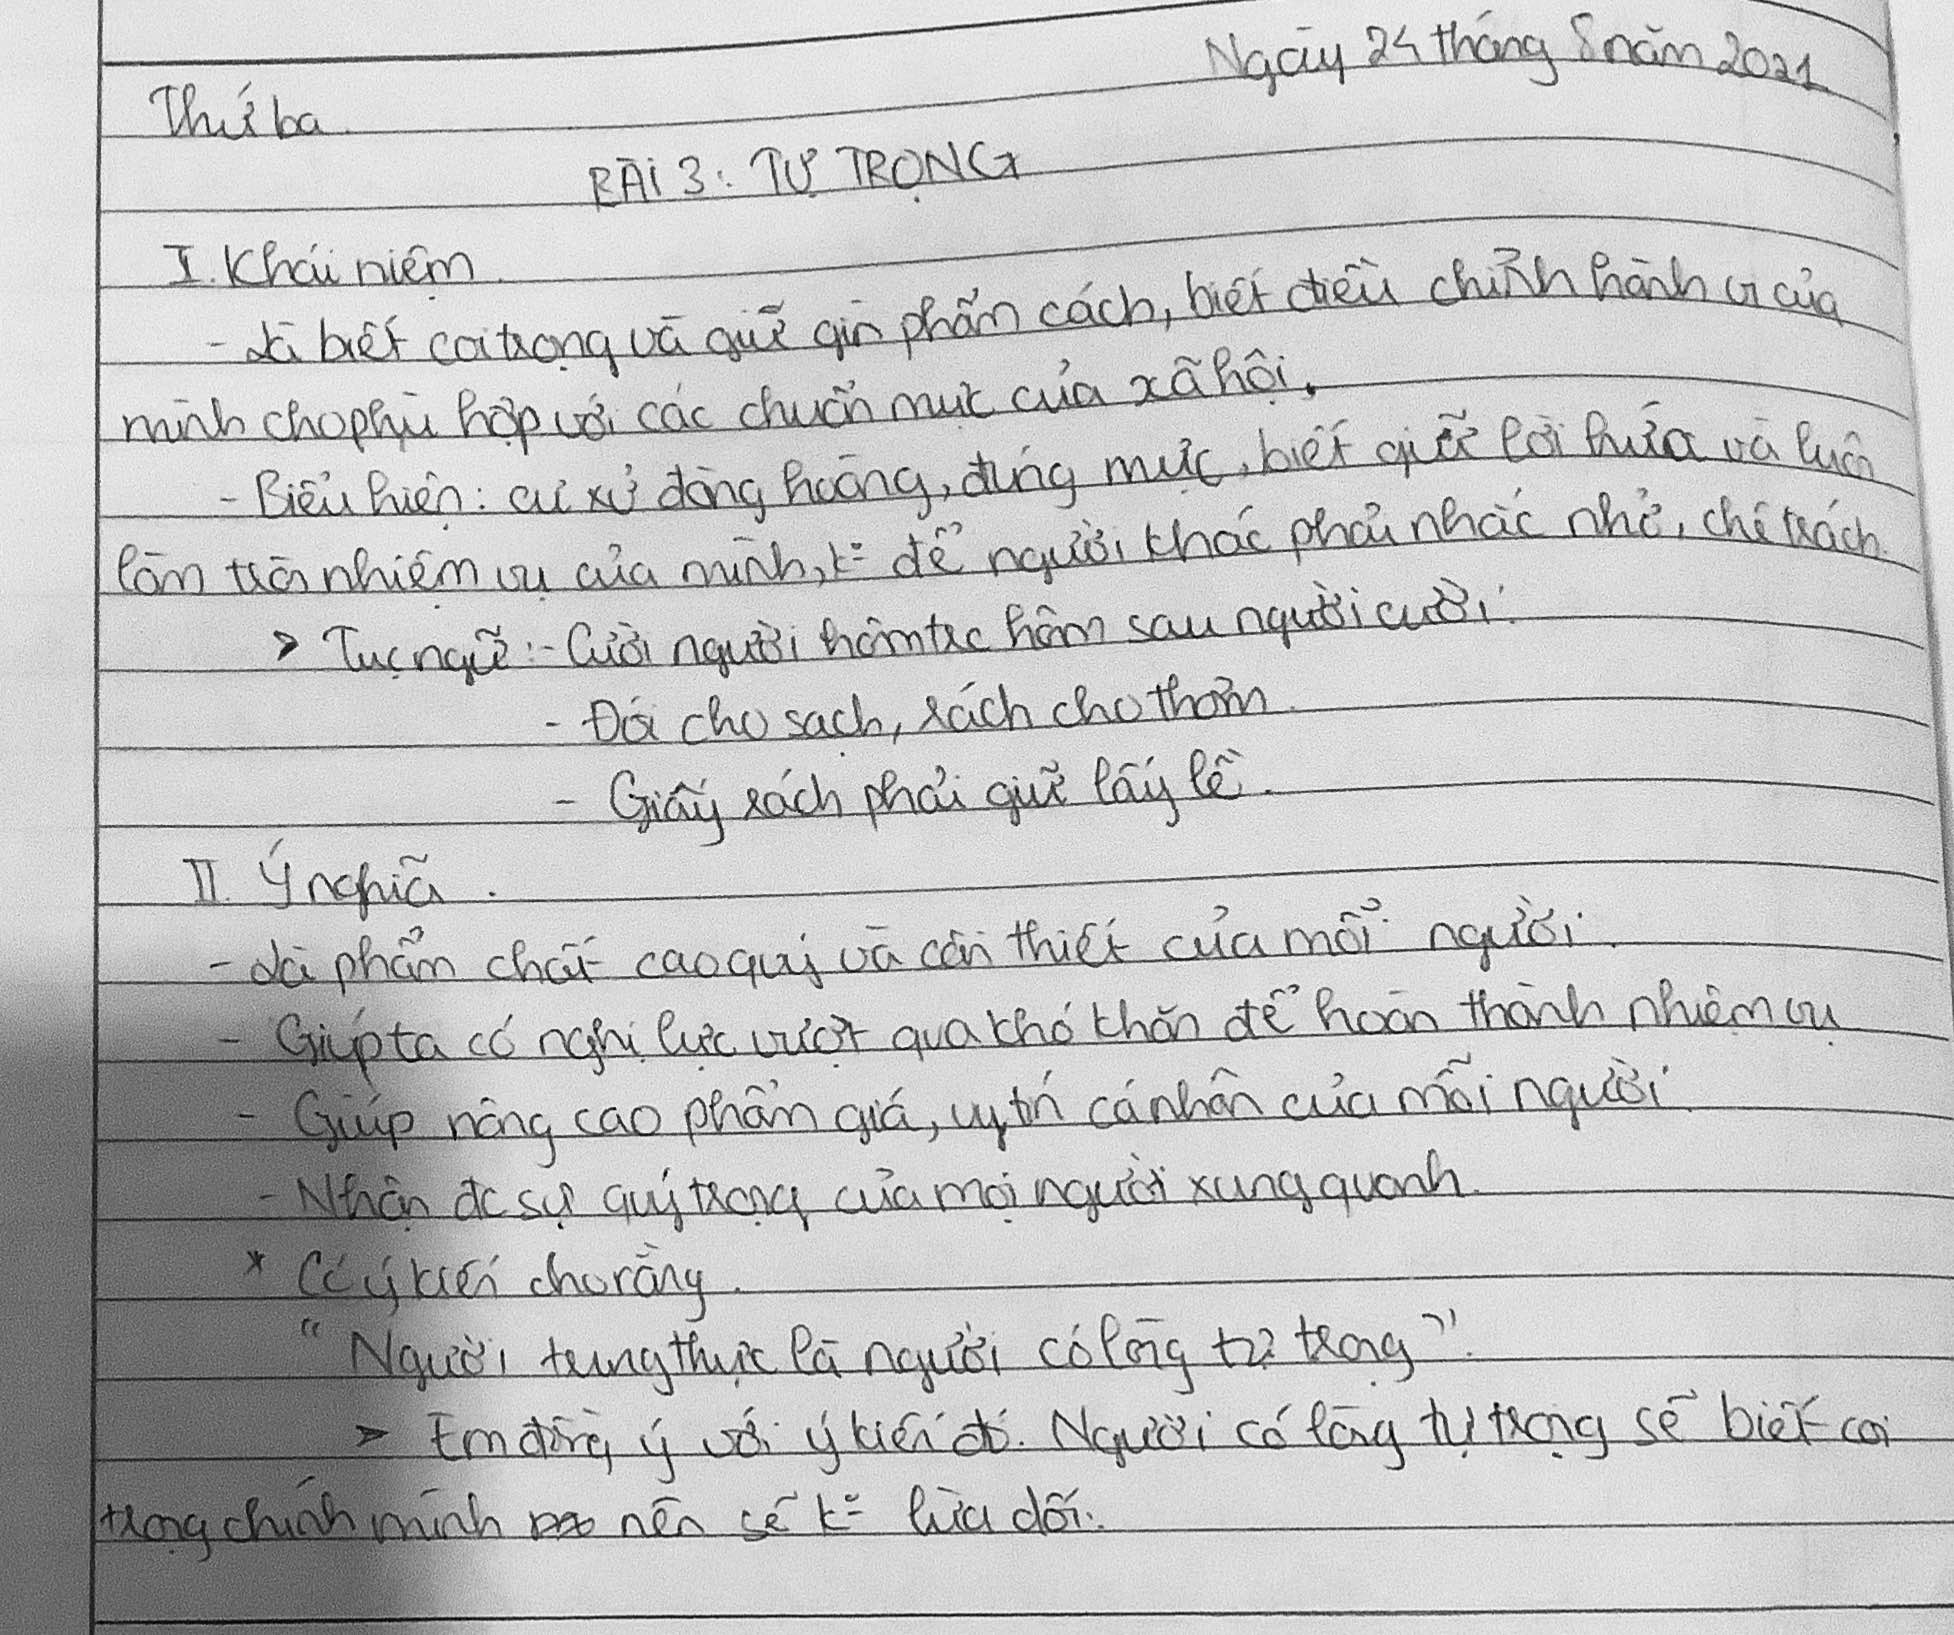 Ngày 24 tháng 8 năm 2021
Thứ ba
BÀI 3: TỰ TRỌNG
I. Khái niệm
- Là biết coi trọng và giữ gìn phẩm cách, biết điều chỉnh hành vi của
mình cho phù hợp với các chuẩn mực của xã hội.
- Biểu hiện: cư xử đàng hoàng, đúng mực, biết giữ lời hứa và luôn
làm tròn nhiệm vụ của mình, k= để người khác phải nhắc nhở, chê trách
> Tục ngữ: - Cười người hôm trc hôm sau người cười.
- Đói cho sạch, rách cho thơm.
- Giấy rách phải giữ lấy lề.
II. Ý nghĩa.
- Là phẩm chất cao quý và cần thiết của mỗi người.
- Giúp ta có nghị lực vượt qua khó khăn để hoàn thành nhiệm vụ
- Giúp nâng cao phẩm giá, uy tín cá nhân của mỗi người.
- Nhận đc sự quý trọng của mọi người xung quanh.
* Có ý kiến cho rằng.
"Người trung thực là người có lòng tự trọng".
> Em đồng ý với ý kiến đó. Người có lòng tự trọng sẽ biết coi
trọng chính mình nên sẽ k= lừa dối.